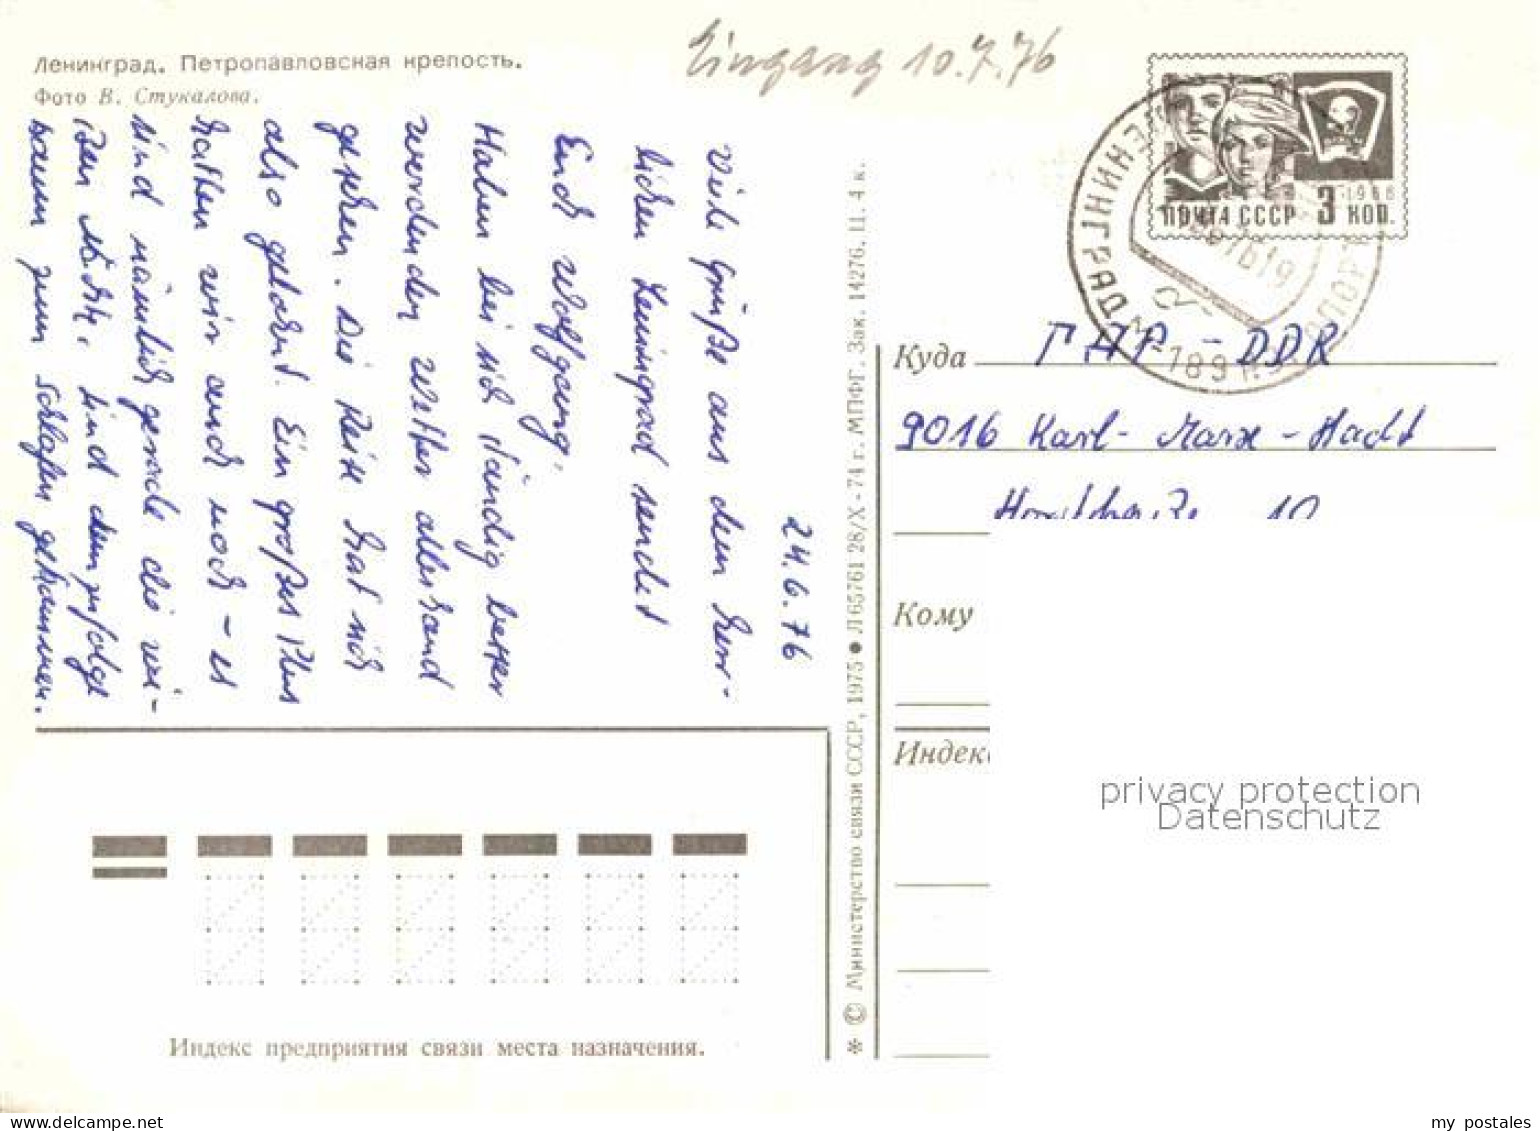 Ленинград. Петропавловская крепость.
Фото В. Стукалова.
Eingang 10.7.76
24.6.76
Viele Grüße aus dem herr-
lichen Leningrad sendet
Euch Wolfgang.
Haben bei sich ständig besser
werdenden Wetter allerhand
gesehen. Die Reise hat sich
also gelohnt. Ein großes Plus
hatten wir auch noch - es
sind nämlich gerade die wei-
ßen Nächte. Sind demzufolge
kaum zum Schlafen gekommen.
ПОЧТА СССР 3 КОП.
1968
ЛЕНИНГРАД
189
Куда ГДР - DDR
9016 Karl-Marx-Stadt
10
Кому
Индекс
* © Министерство связи СССР, 1975 ● Л 65761 28/X-74 г. МПФГ. Зак. 14276. Ц. 4 к.
Индекс предприятия связи места назначения.
privacy protection
Datenschutz
www.delcampe.net
my_postales